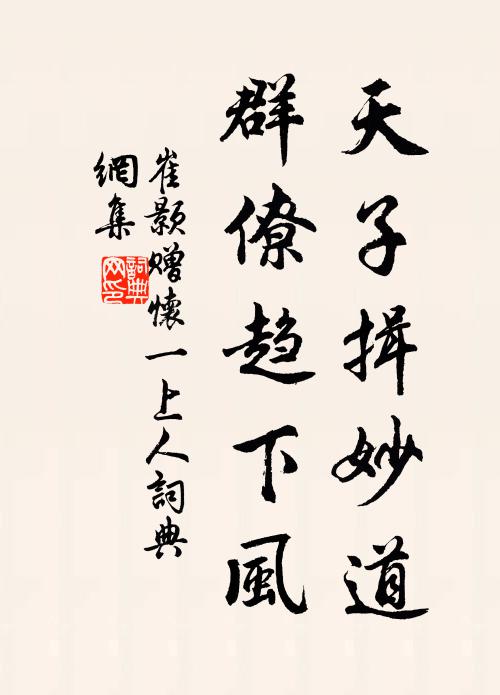 天子揖妙道
群僚趋下風
崔颢赠懷一上人詞典
網集
詞典
网印